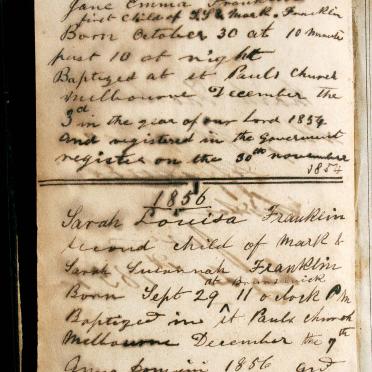 Jane Emma Franklin
first Child of S S & Mark Franklin
Born October 30 at 10 Minutes
past 10 at night
Baptized at st Pauls Church
Melbourne December the
3rd in the year of our Lord 1854
and registered in the Government
register on the 30th november
1854
1856
Sarah Louisa Franklin
second child of Mark &
Sarah Susannah Franklin
at Brunswick
Born Sept 29 11 o clock PM
Baptized in st Pauls church
Melbourne December the 7th
Anno Domini 1856 and